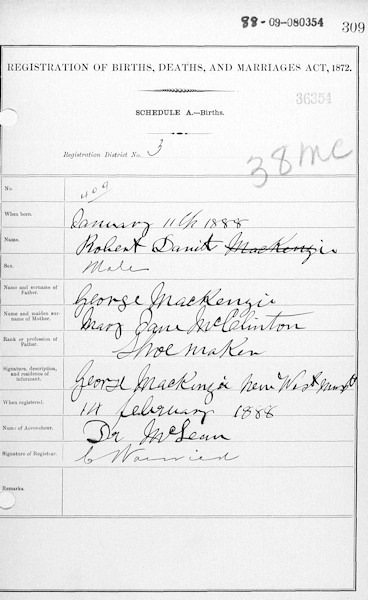 88-09-080354
309
REGISTRATION OF BIRTHS, DEATHS, AND MARRIAGES ACT, 1872.
36354
SCHEDULE A.—Births.
Registration District No. 3
38 Mc
No. 409
When born. January 11th 1888
Name. Robert David MacKenzie
Sex. Male
Name and surname of Father. George MacKenzie
Name and maiden surname of Mother. Mary Jane McClinton
Rank or profession of Father. Shoemaker
Signature, description, and residence of informant. George MacKenzie New Westminster
When registered. 14 february 1888
Name of Accoucheur. Dr McLean
Signature of Registrar. C
Remarks.